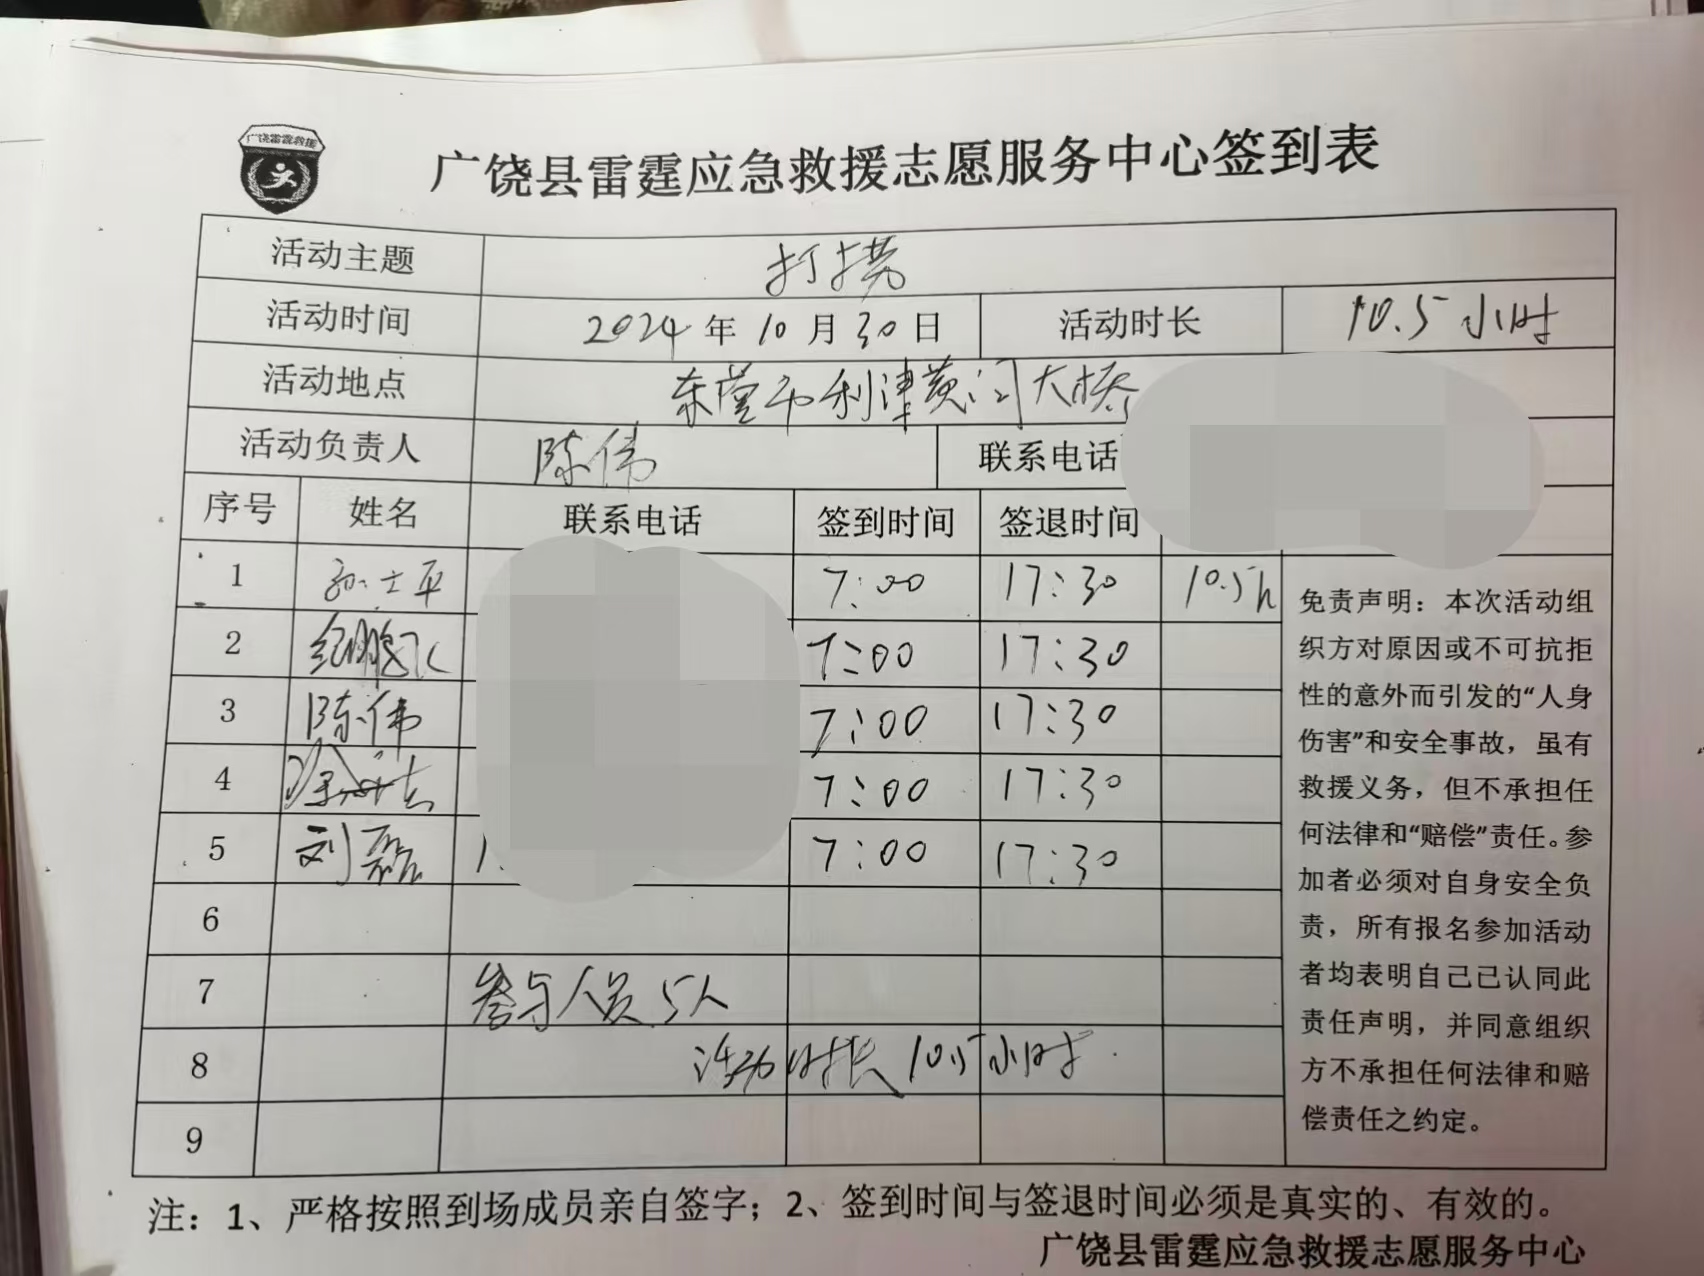 广饶雷霆救援
广饶县雷霆应急救援志愿服务中心签到表
活动主题 打捞
活动时间 2024年10月30日 活动时长 10.5小时
活动地点 东营市利津黄河大桥
活动负责人 陈伟 联系电话
序号 姓名 联系电话 签到时间 签退时间
1 孙士平 7:00 17:30 10.5h
2 7:00 17:30
3 陈伟 7:00 17:30
4 7:00 17:30
5 刘磊 1 7:00 17:30
6
7 参与人员5人
8 活动时长10.5小时
9
免责声明：本次活动组
织方对原因或不可抗拒
性的意外而引发的“人身
伤害”和安全事故，虽有
救援义务，但不承担任
何法律和“赔偿”责任。参
加者必须对自身安全负
责，所有报名参加活动
者均表明自己已认同此
责任声明，并同意组织
方不承担任何法律和赔
偿责任之约定。
注：1、严格按照到场成员亲自签字；2、签到时间与签退时间必须是真实的、有效的。
广饶县雷霆应急救援志愿服务中心